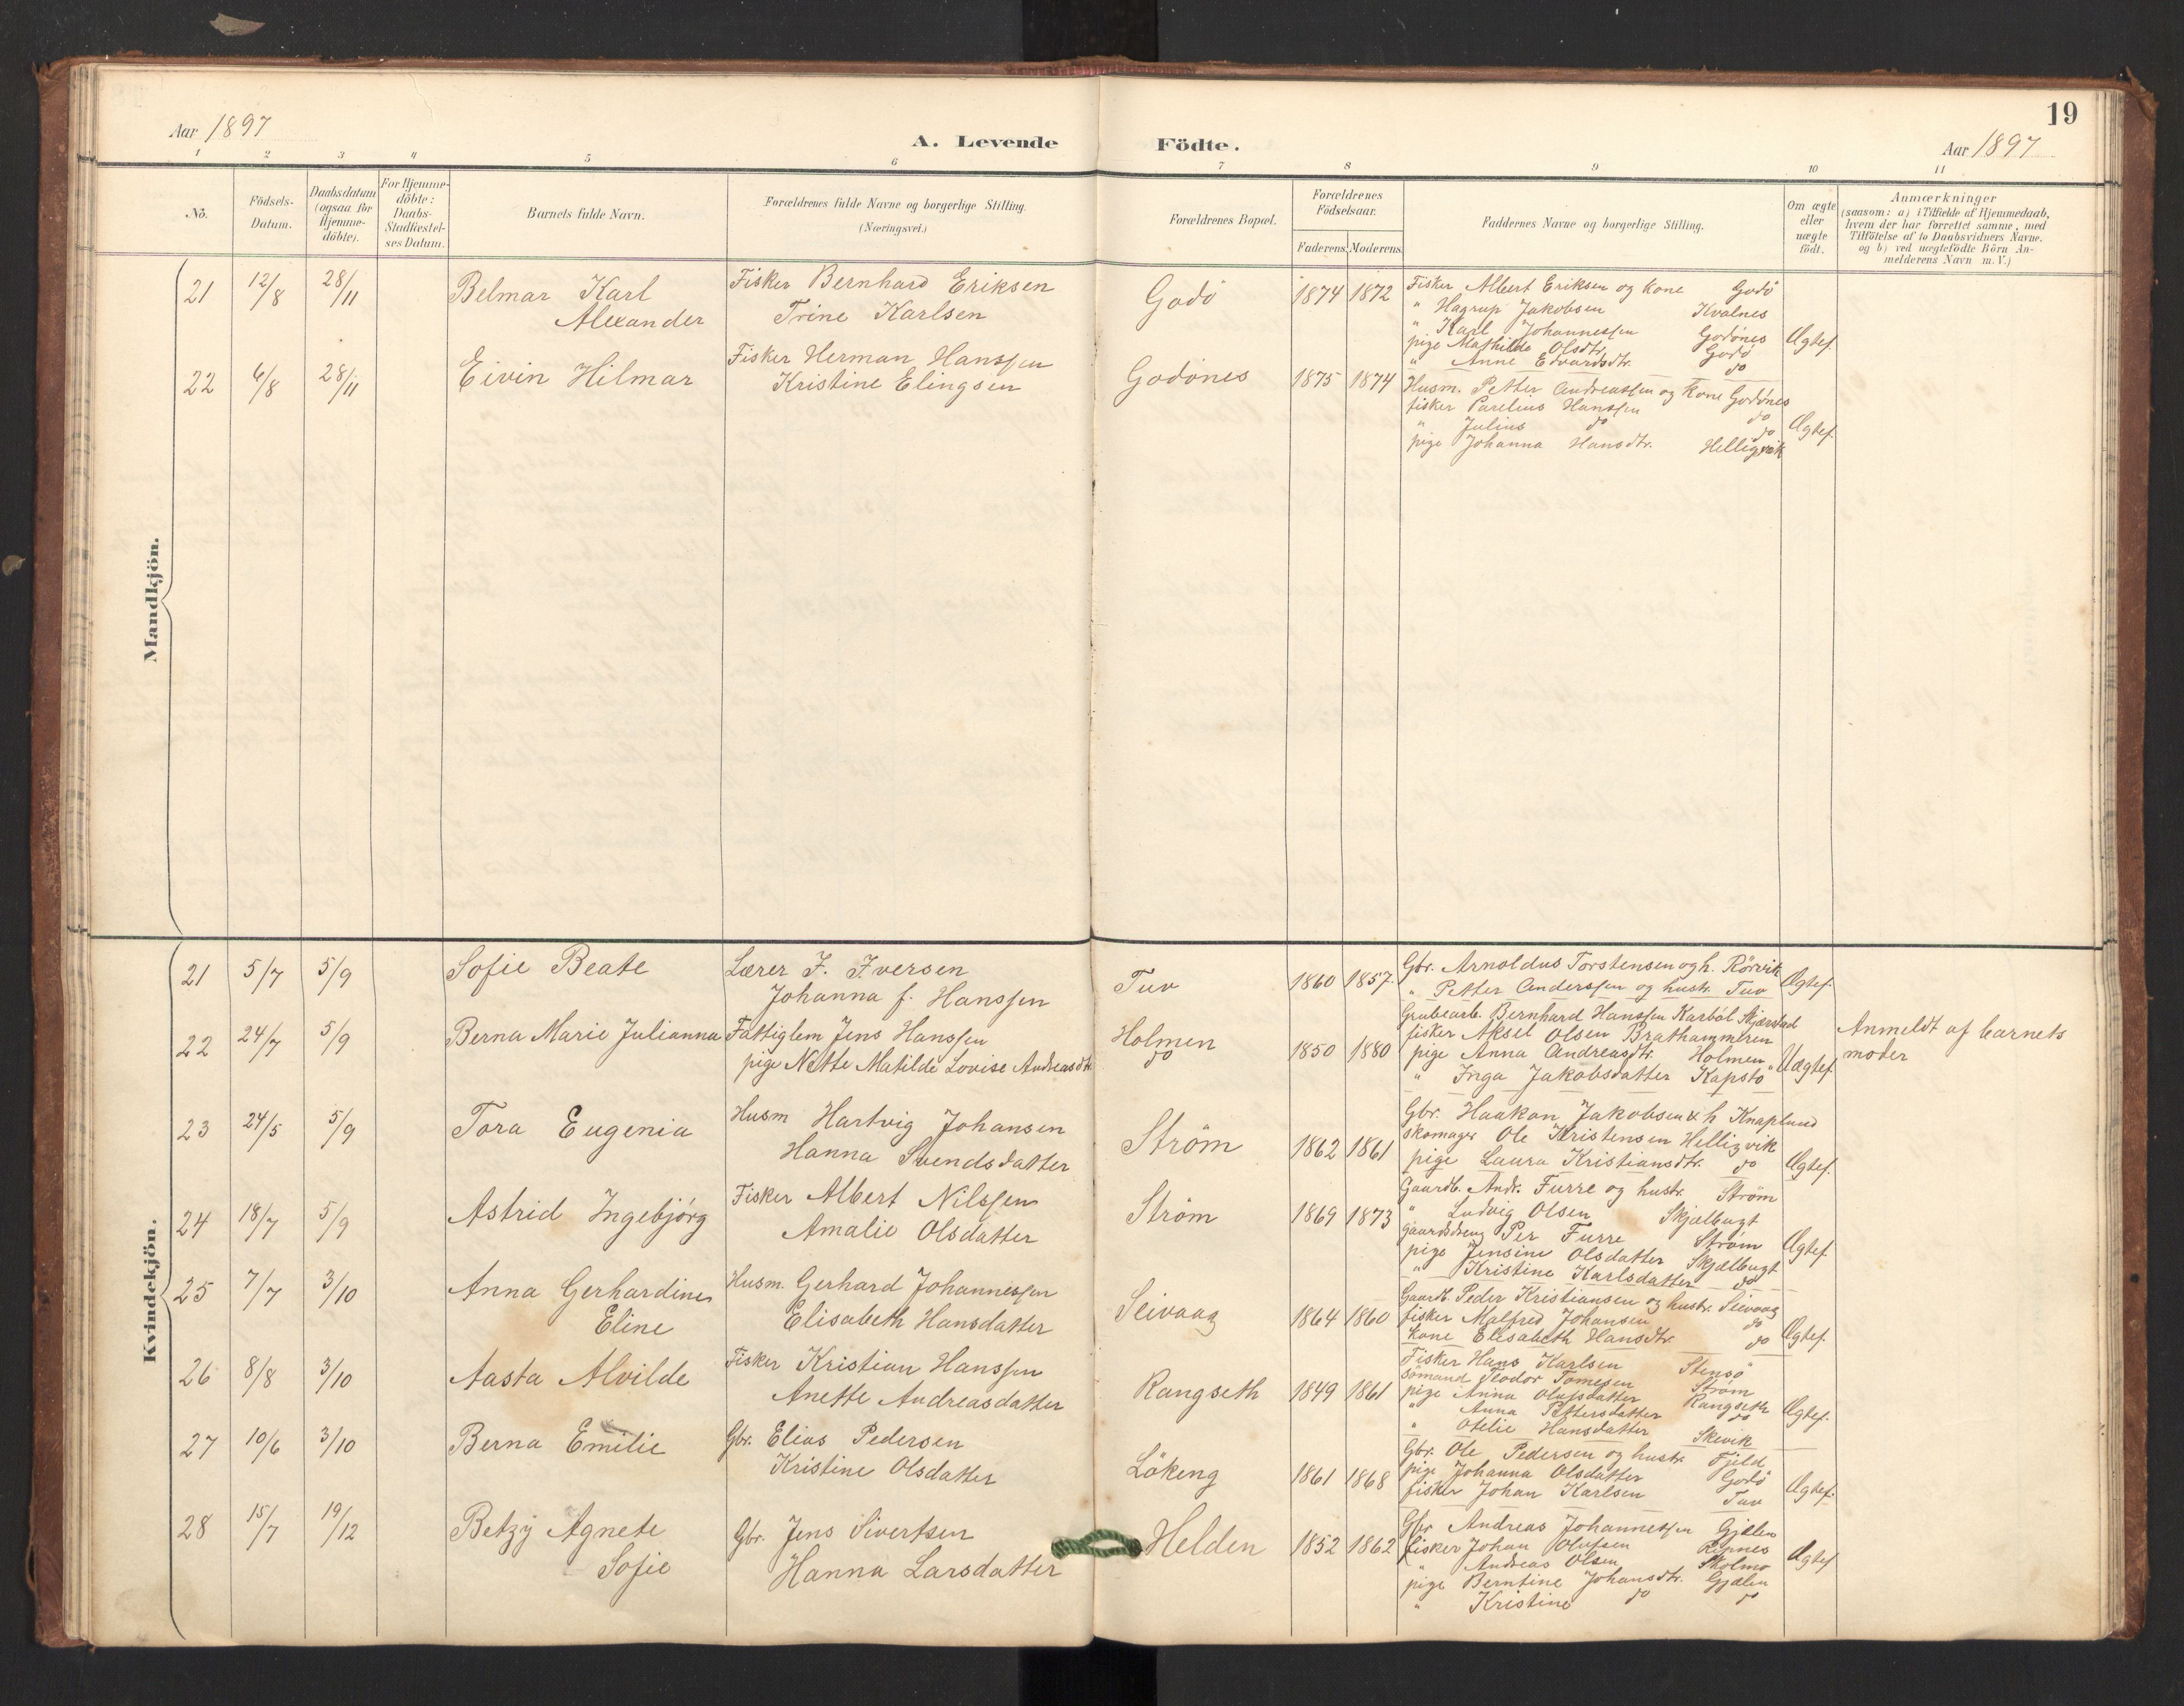 19
Aar 1897
A. Levende Födte.
Aar 1897
1 2 3 4 5 6 7 8 9 10 11
No.
Födsels-
Datum.
Daabsdatum
(ogsaa for
Hjemme-
döbte).
For Hjemme-
döbte:
Daabs-
Stadfæstel-
ses Datum.
Barnets fulde Navn.
Forældrenes fulde Navne og borgerlige Stilling.
(Næringsvei.)
Forældrenes Bopæl.
Forældrenes
Födselsaar.
Faderens. Moderens.
Faddernes Navne og borgerlige Stilling.
Om ægte
eller
uægte
födt.
Anmærkninger
(saasom: a) i Tilfælde af Hjemmedaab,
hvem der har forrettet samme, med
Tilföielse af to Daabsvidners Navne.
og b) ved uægtefödte Börn An-
melderens Navn m. V.)
Mandkjön.
21 12/8 28/11 Belmar Karl
Alexander
Fisker Bernhard Eriksen
Trine Karlsen
Godö 1874 1872
Fisker Albert Eriksen og kone Godö
" Hagrup Jakobsen Kvalnes
" Karl Johannessen Godönes
pige Mathilde Olsdtr. Godö
" Anne Edvardsdtr. do
Ægtef.
22 6/8 28/11 Eivin Hilmar
Fisker Herman Hanssen
Kristine Elingsen
Godönes 1875 1874
Husm. Petter Andreassen og kone Godönes
fisker Parelius Hanssen do
" Julius do do
pige Johanna Hansdtr. Helligvik
Ægtef.
Kvindekjön.
21 5/7 5/9 Sofie Beate
Lærer J. Iversen
Johanna f. Hanssen
Tuv 1860 1857.
Gbr. Arnoldus Torstensen og h. Rörvik
" Petter Anderssen og hustr. Tuv
Ægtef.
22 24/7 5/9 Berna Marie Julianna
Fattiglem Jens Hanssen
pige Nette Matilde Lovise Andreasdtr.
Holmen
do
1850 1880
Grubearb. Bernhard Hanssen Karböl Skjærstad
fisker Aksel Olsen Brathammeren
pige Anna Andreasdtr. Holmen
" Inga Jakobsdatter Kapstö
Uægtef.
Anmeldt af barnets
moder
23 24/5 5/9 Tora Eugenia
Husm Hartvig Johansen
Hanna Svendsdatter
Ström 1862 1861
Gbr. Haakon Jakobsen & h Knaplund
skomager Ole Kristensen Helligvik
pige Laura Kristiansdtr. do
Ægtef.
24 18/7 5/9 Astrid Ingebjörg
Fisker Albert Nilssen
Amalie Olsdatter
Ström 1869 1873
Gaardb. Andr. Furre og hustr. Ström
" Ludvig Olsen Skjælbugt
gaardsdreng Per Furre Ström
pige Jensine Olsdatter Skjælbugt
" Kristine Karlsdatter do
Ægtef.
25 7/7 3/10 Anna Gerhardine
Eline
Husm. Gerhard Johannessen
Elisabeth Hansdatter
Seivaag 1864 1860
Gaardb. Peder Kristiansen og hustr. Seivaag
fisker Malfred Johansen do
kone Elisabeth Hansdtr. do
Ægtef.
26 8/8 3/10 Aasta Alvilde
Fisker Kristian Hanssen
Anette Andreasdatter
Rangseth 1849 1861
Fisker Hans Karlsen Stensö
sömand Teodor Tomesen Ström
pige Anna Olufsdatter Rangseth
" Anna Pettersdatter do
" Otelie Hansdatter Skevik
Ægtef.
27 10/6 3/10 Berna Emilie
Gbr. Elias Pedersen
Kristine Olsdatter
Lökeng 1861 1868
Gbr. Ole Pedersen og hustr. Fjeld
pige Johanna Olsdatter Godö
fisker Johan Karlsen Tuv
Ægtef.
28 15/7 19/12 Betzy Agnete
Sofie
Gbr. Jens Sivertsen
Hanna Larsdatter
Helden 1852 1862
Gbr Andreas Johannessen Gjælen
fisker Johan Olufsen Ripnes
" Andreas Olsen Skolmo
pige Berntine Johansdtr. Gjælen
" Kristine do do
Ægtef